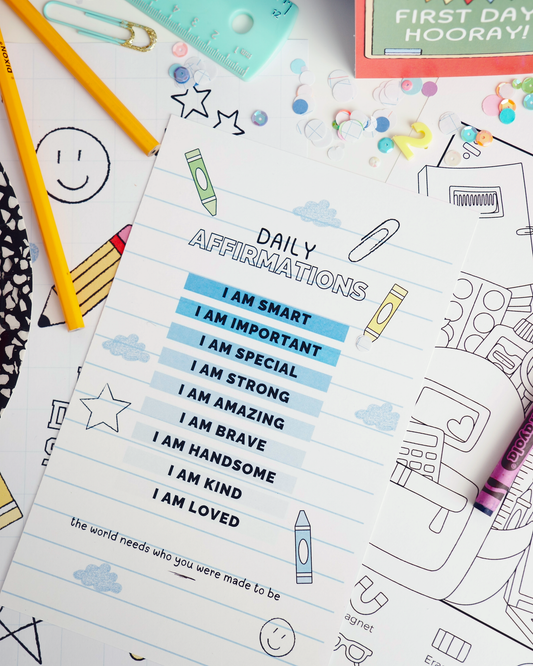 FIRST DAY
HOORAY!
DIXON
DAILY
AFFIRMATIONS
I AM SMART
I AM IMPORTANT
I AM SPECIAL
I AM STRONG
I AM AMAZING
I AM BRAVE
I AM HANDSOME
I AM KIND
I AM LOVED
the world needs who you were made to be
Crayola
agnet
Era